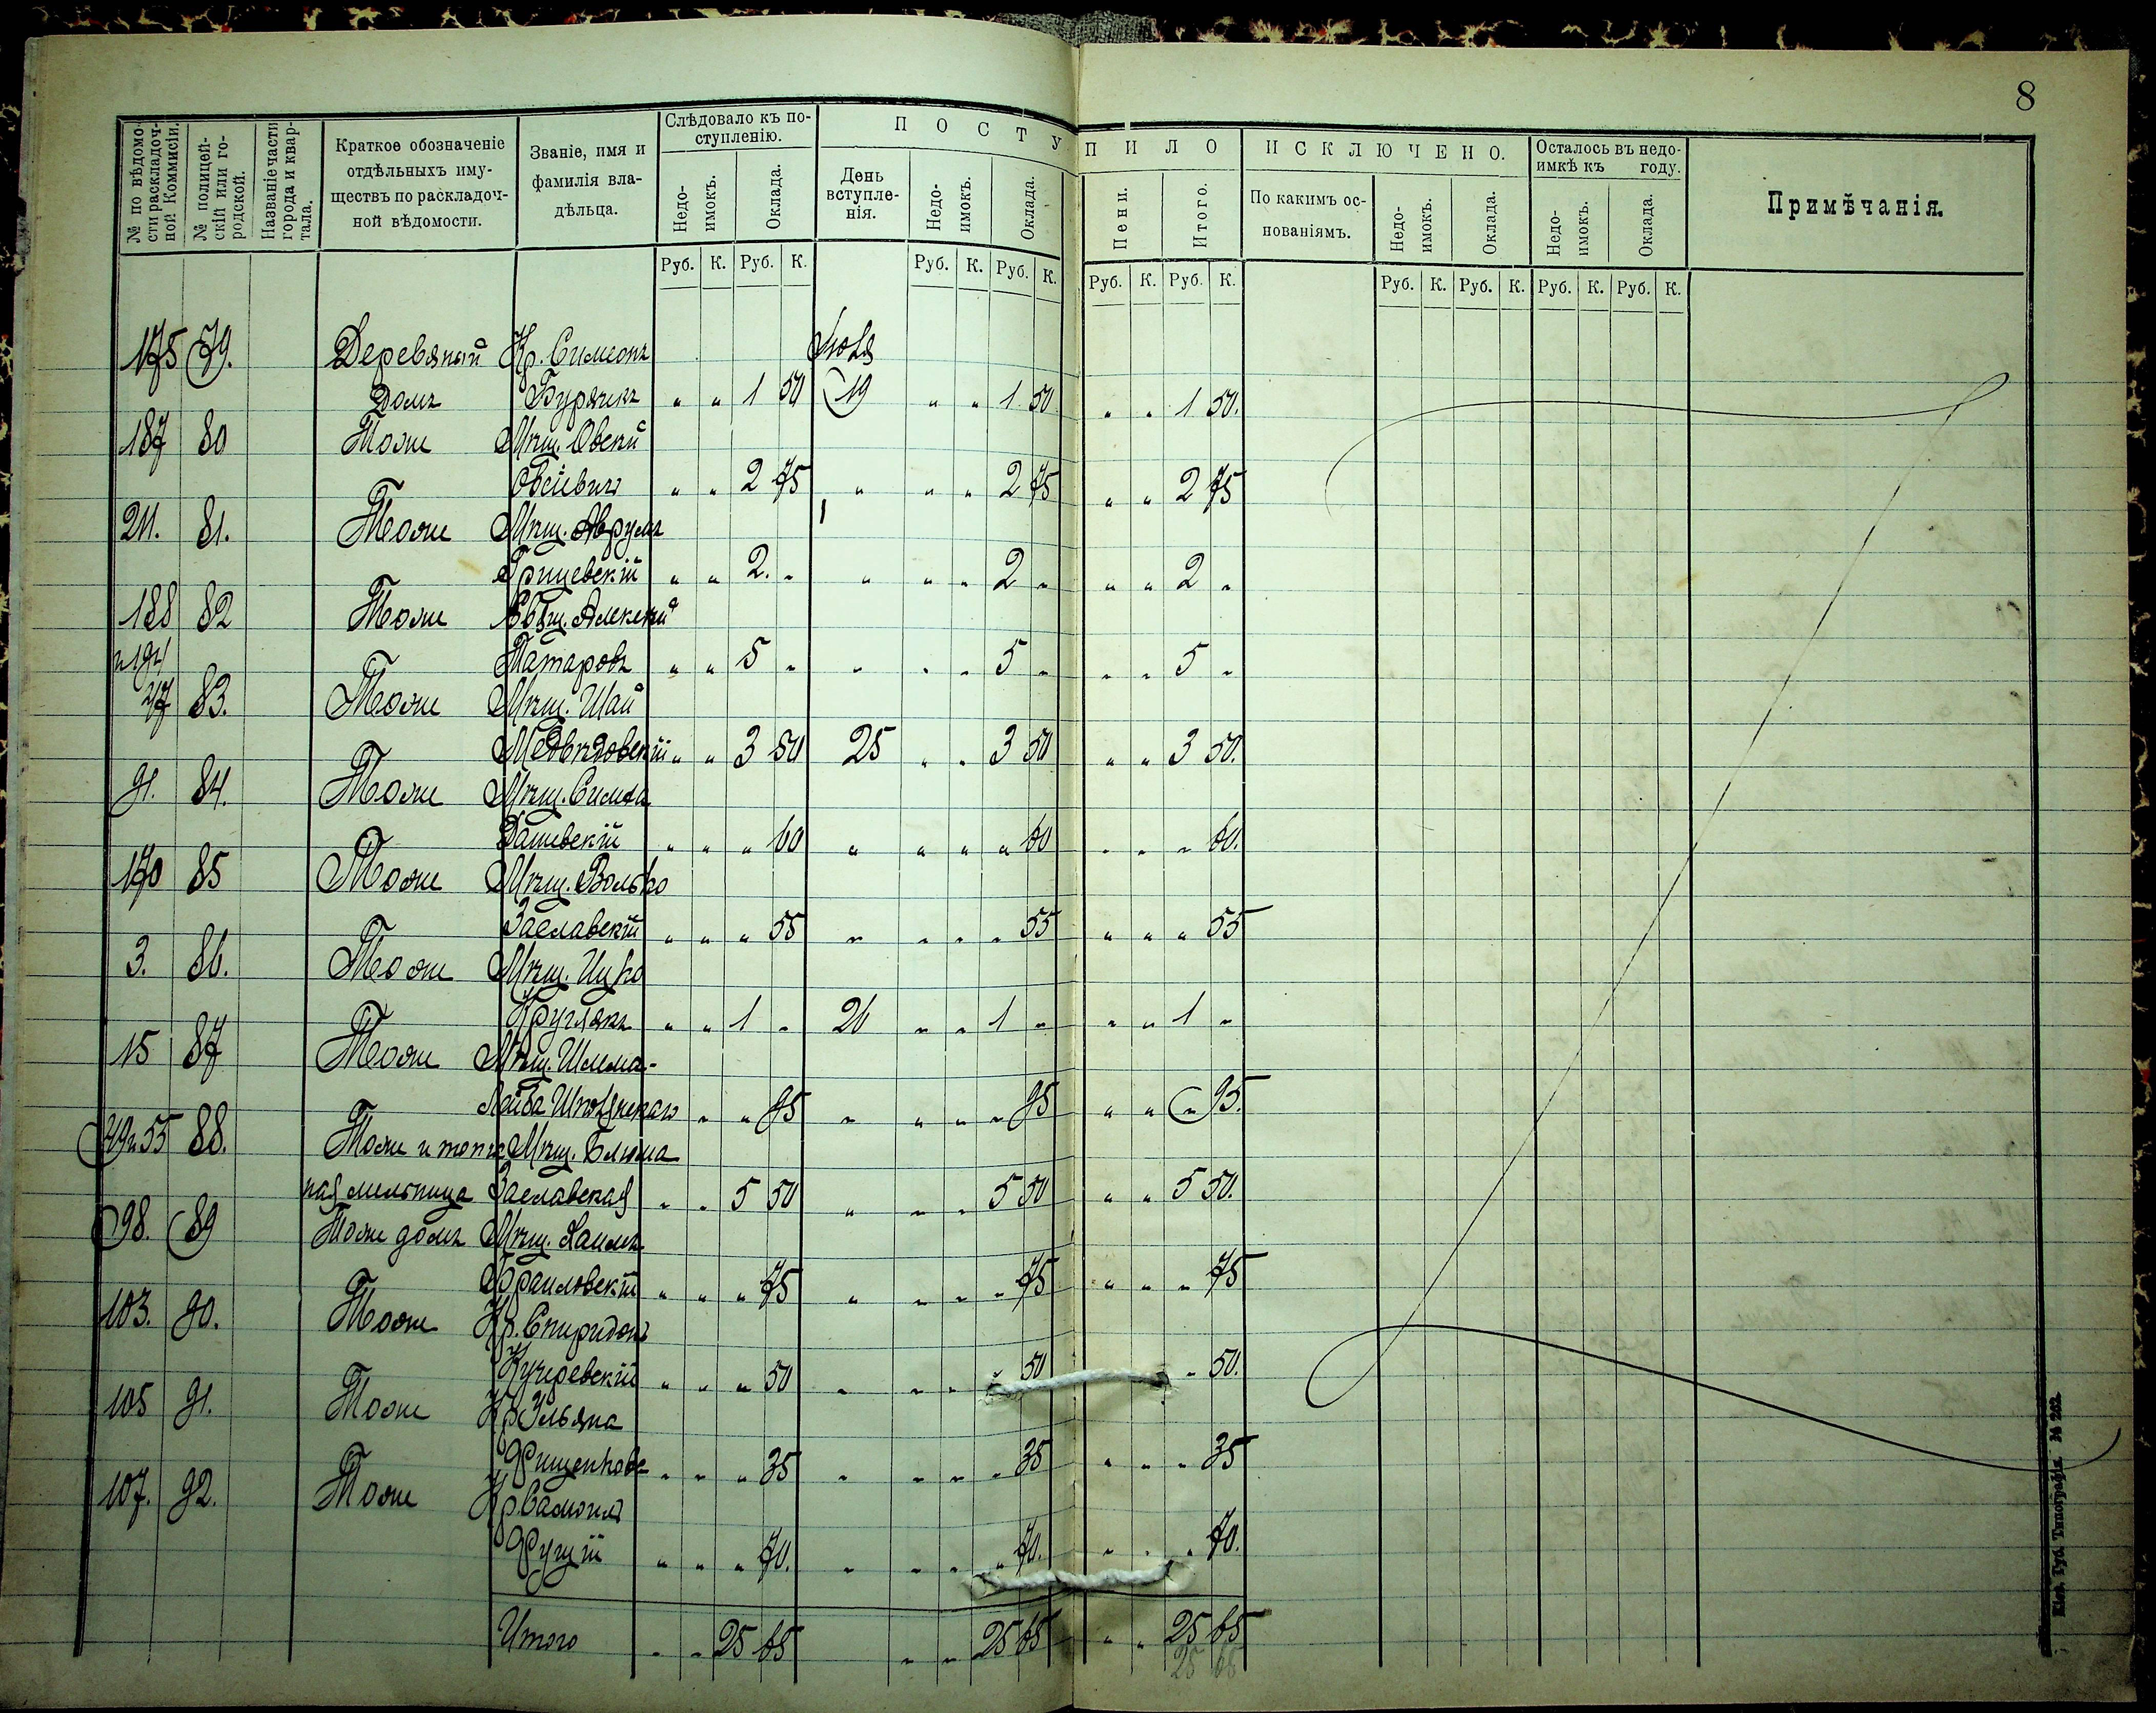 8
№ по вѣдомости раскладочной Коммисіи.
№ полицейскій или городской.
Названіе части города и квартала.
Краткое обозначеніе отдѣльныхъ имуществъ по раскладочной вѣдомости.
Званіе, имя и фамилія владѣльца.
Слѣдовало къ поступленію.
Недоимокъ. Оклада.
ПОСТУПИЛО
День вступленія.
Недоимокъ. Оклада. Пени. Итого.
ИСКЛЮЧЕНО.
По какимъ основаніямъ.
Недоимокъ. Оклада.
Осталось въ недоимкѣ къ году.
Недоимокъ. Оклада.
Примѣчанія.
Руб. К. Руб. К. Руб. К. Руб. К. Руб. К. Руб. К. Руб. К. Руб. К. Руб. К. Руб. К.
175 79. Деревяный Кр. Симеонъ Іюля
Домъ Бурячкъ " " 1 50 19 " " 1 50 " " 1 50.
187 80 Тоже Мѣщ. Овсей
Овсіевичъ " " 2 75 " " " 2 75 " " 2 75
211. 81. Тоже Мѣщ. Аврумъ
Грицевскій " " 2. " " " " 2 " " " 2 "
188 82 Тоже Алексѣй
и 194 Татаровъ " " 5 " " " " 5 " " " 5 "
217 83. Тоже Мѣщ. Шая
Медвѣдовскій " " 3 50 25 " " 3 50 " " 3 50.
91. 84. Тоже Мѣщ. Симха
Дашевскій " " " 60 " " " " 60 " " " 60.
170 85 Тоже Мѣщ. Волько
Заславскій " " " 55 " " " " 55 " " " 55
3. 86. Тоже Мѣщ. Ицко
Круглякъ " " 1 " 26 " " 1 " " " 1 "
15 87 Тоже Мѣщ. Шлема-
Лейба " " 95 " " " " 95 " " " 95.
49 и 55 88. Тоже и топчаМѣщ. Блюма
ная мельница Заславская " " 5 50 " " " 5 50 " " 5 50.
98. 89 Тоже домъ Мѣщ. Хаимъ
Браиловскій " " " 75 " " " " 75 " " " 75
103. 90. Тоже Кр. Спиридонъ
Кучеревскій " " " 50 " " " " 50 " 50.
105 91. Тоже Кр. Ульяна
Фищенкова " " " 35 " " " " 35 " " " 35
107. 92. Тоже Кр. Самоилъ
" " " 70. " " " " 70. " " " 70.
Итого " " 25 65 " " 25 65 " " 25 65
25 65
Кіев. Губ. Типографія. № 242.